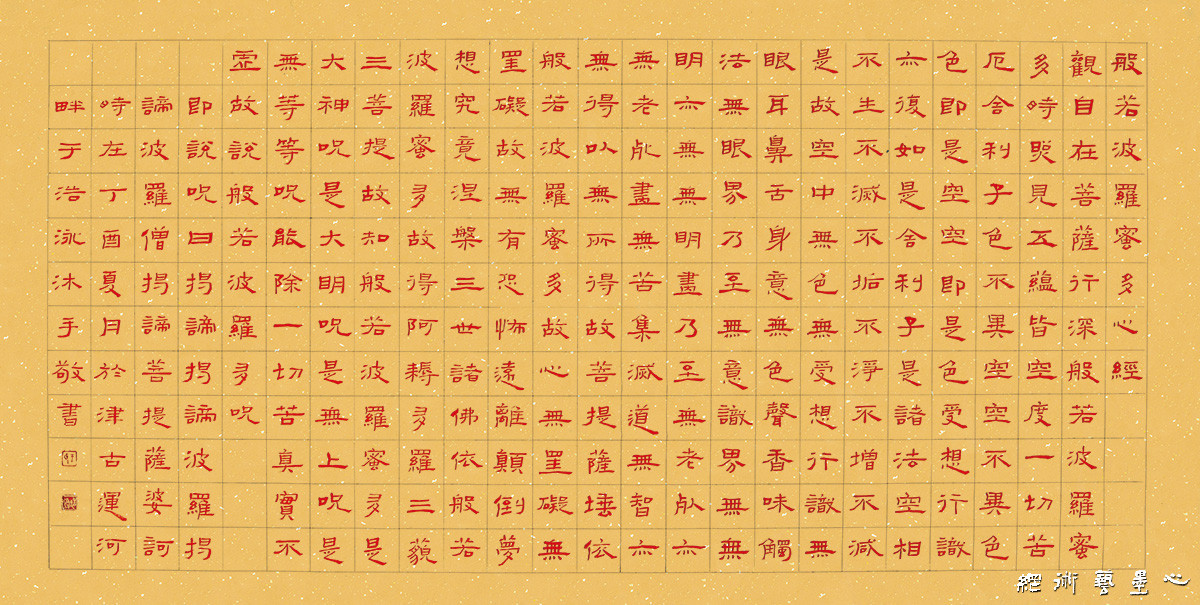 般若波羅蜜多心經
觀自在菩薩行深般若波羅蜜
多時照見五蘊皆空度一切苦
厄舍利子色不異空空不異色
色即是空空即是色受想行識
亦復如是舍利子是諸法空相
不生不滅不垢不淨不增不減
是故空中無色無受想行識無
眼耳鼻舌身意無色聲香味觸
法無眼界乃至無意識界無無
明亦無無明盡乃至無老死亦
無老死盡無苦集滅道無智亦
無得以無所得故菩提薩埵依
般若波羅蜜多故心無罣礙無
罣礙故無有恐怖遠離顛倒夢
想究竟涅槃三世諸佛依般若
波羅蜜多故得阿耨多羅三藐
三菩提故知般若波羅蜜多是
大神咒是大明咒是無上咒是
無等等咒能除一切苦真實不
虛故說般若波羅多咒
即說咒曰揭諦揭諦波羅揭
諦波羅僧揭諦菩提薩婆訶
時在丁酉夏月於津古運河
畔于浩泳沐手敬書
心墨藝術